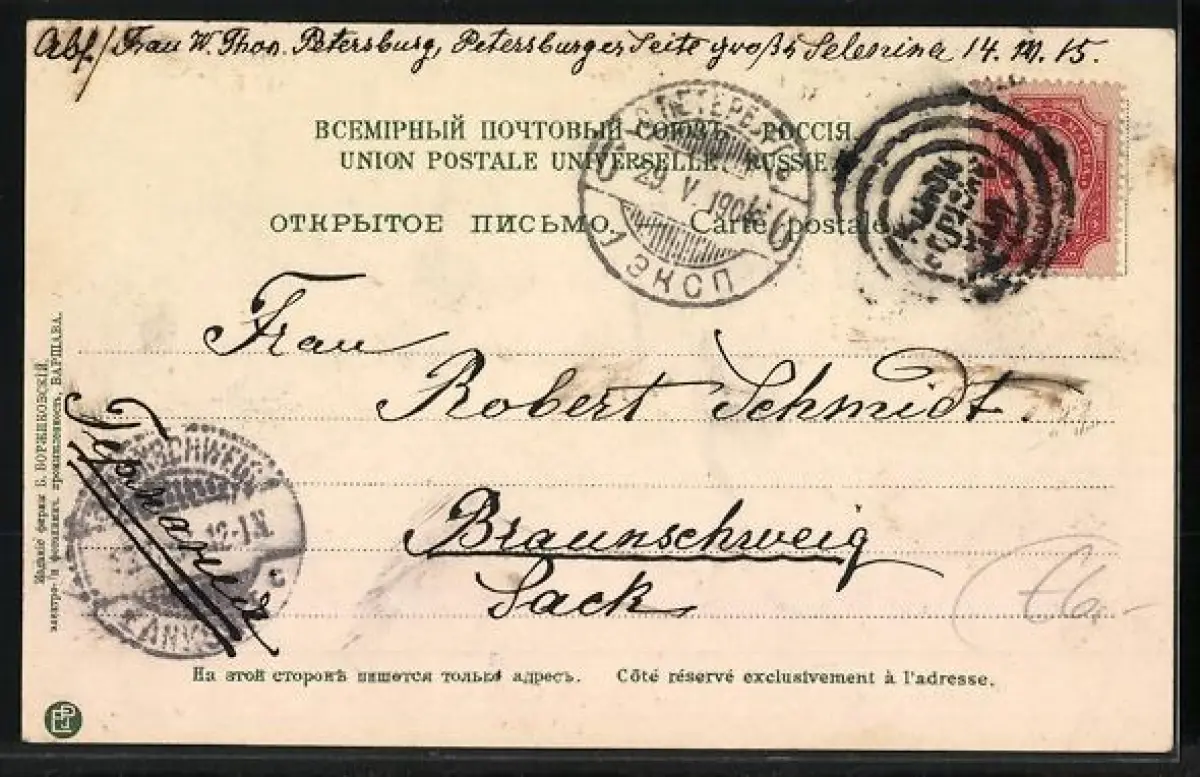 Abs/ Frau W. Thon. Petersburg, Petersburger Seite 14. 15.
ВСЕМІРНЫЙ ПОЧТОВЫЙ СОЮЗЪ. РОССІЯ.
UNION POSTALE UNIVERSELLE. RUSSIE.
ОТКРЫТОЕ ПИСЬМО. Carte postale
С. ПЕТЕРБУРГЪ
29. V. 190
1 ЭКСП 
Frau
Robert Schmidt.
Braunschweig
Sack
Германия
BRAUNSCHWEIG
12-1N.
Изданіе фирмы Б. ВОРЖЕКОВСКІЙ,
ВАРШАВА.
На этой сторонѣ пишется только адресъ. Côté réservé exclusivement à l'adresse.